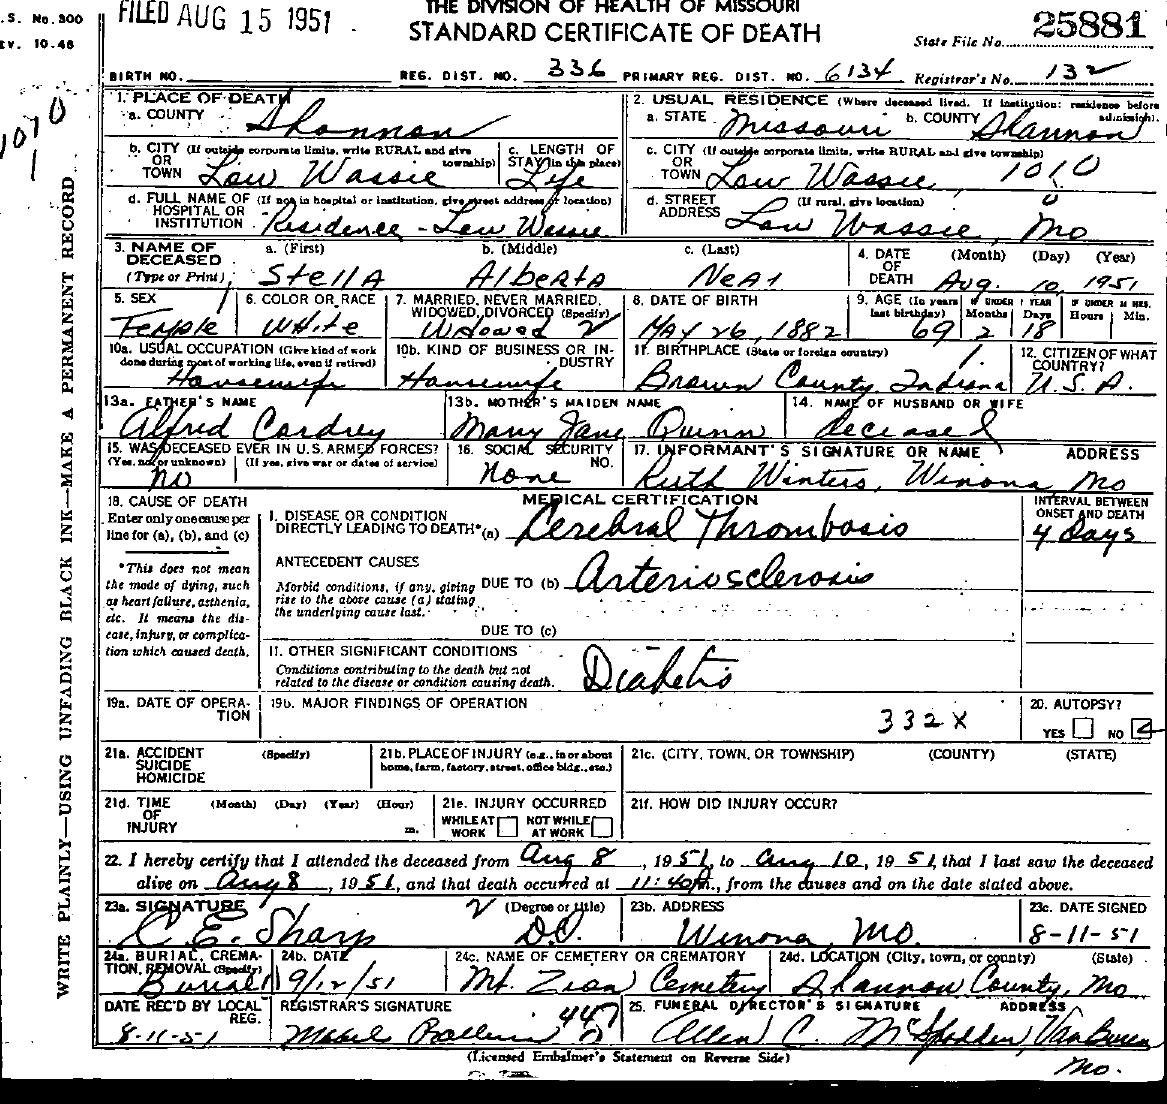 THE DIVISION OF HEALTH OF MISSOURI
S. No. 300
FILED AUG 15 1951
STANDARD CERTIFICATE OF DEATH
25881
EV. 10-48
State File No.
BIRTH NO. REG. DIST. NO. 336 PRIMARY REG. DIST. NO. 6134 Registrar's No. 132
1010
1
WRITE PLAINLY—USING UNFADING BLACK INK—MAKE A PERMANENT RECORD
1. PLACE OF DEATH
a. COUNTY Shannon
2. USUAL RESIDENCE (Where deceased lived. If institution: residence before admission).
a. STATE Missouri b. COUNTY Shannon
b. CITY (If outside corporate limits, write RURAL and give township)
OR
TOWN Low Wassie
c. LENGTH OF
STAY (in this place)
Life
c. CITY (If outside corporate limits, write RURAL and give township)
OR
TOWN Low Wassie, 1010
d. FULL NAME OF (If not in hospital or institution, give street address or location)
HOSPITAL OR
INSTITUTION Residence - Low Wassie
d. STREET (If rural, give location)
ADDRESS Low Wassie, Mo
3. NAME OF DECEASED
(Type or Print)
a. (First) b. (Middle) c. (Last)
Stella Alberta Neal
4. DATE OF DEATH (Month) (Day) (Year)
Aug. 10, 1951
5. SEX
Female
6. COLOR OR RACE
White
7. MARRIED, NEVER MARRIED,
WIDOWED, DIVORCED (Specify)
Widowed 2
8. DATE OF BIRTH
May 26, 1882
9. AGE (In years last birthday) 69
IF UNDER 1 YEAR Months 2 Days 18
IF UNDER 24 HRS. Hours Min.
10a. USUAL OCCUPATION (Give kind of work
done during most of working life, even if retired)
Housewife
10b. KIND OF BUSINESS OR INDUSTRY
Housewife
11. BIRTHPLACE (State or foreign country)
Brown County, Indiana
12. CITIZEN OF WHAT COUNTRY?
U.S.A.
13a. FATHER'S NAME
Alfred Cordrey
13b. MOTHER'S MAIDEN NAME
Mary Jane Quinn
14. NAME OF HUSBAND OR WIFE
deceased
15. WAS DECEASED EVER IN U.S. ARMED FORCES?
(Yes, no or unknown) (If yes, give war or dates of service)
no
16. SOCIAL SECURITY NO.
none
17. INFORMANT'S SIGNATURE OR NAME ADDRESS
Ruth Winters, Winona Mo
18. CAUSE OF DEATH
Enter only one cause per
line for (a), (b), and (c)
*This does not mean
the mode of dying, such
as heart failure, asthenia,
etc. It means the dis-
ease, injury, or complica-
tion which caused death.
MEDICAL CERTIFICATION
I. DISEASE OR CONDITION
DIRECTLY LEADING TO DEATH*(a) Cerebral Thrombosis
INTERVAL BETWEEN
ONSET AND DEATH
4 Days
ANTECEDENT CAUSES
Morbid conditions, if any, giving
rise to the above cause (a) stating
the underlying cause last.
DUE TO (b) Arteriosclerosis
DUE TO (c)
II. OTHER SIGNIFICANT CONDITIONS
Conditions contributing to the death but not
related to the disease or condition causing death.
Diabetis
19a. DATE OF OPERA-
TION
19b. MAJOR FINDINGS OF OPERATION
332X
20. AUTOPSY?
YES NO
21a. ACCIDENT (Specify)
SUICIDE
HOMICIDE
21b. PLACE OF INJURY (e.g., in or about
home, farm, factory, street, office bldg., etc.)
21c. (CITY, TOWN, OR TOWNSHIP) (COUNTY) (STATE)
21d. TIME (Month) (Day) (Year) (Hour)
OF
INJURY m.
21e. INJURY OCCURRED
WHILE AT WORK NOT WHILE AT WORK
21f. HOW DID INJURY OCCUR?
22. I hereby certify that I attended the deceased from Aug 8, 1951, to Aug 10, 1951, that I last saw the deceased
alive on Aug 8, 1951, and that death occurred at 11:40 m., from the causes and on the date stated above.
23a. SIGNATURE (Degree or title)
C. E. Sharp D.O.
23b. ADDRESS
Winona, Mo.
23c. DATE SIGNED
8-11-51
24a. BURIAL, CREMA-
TION, REMOVAL (Specify)
Burial
24b. DATE
9/12/51
24c. NAME OF CEMETERY OR CREMATORY
Mt. Zion Cemetery
24d. LOCATION (City, town, or county) (State)
Shannon County, Mo
DATE REC'D BY LOCAL REG.
8-11-51
REGISTRAR'S SIGNATURE
447
25. FUNERAL DIRECTOR'S SIGNATURE ADDRESS
Allen C. McSpadden, Van Buren
Mo.
(Licensed Embalmer's Statement on Reverse Side)